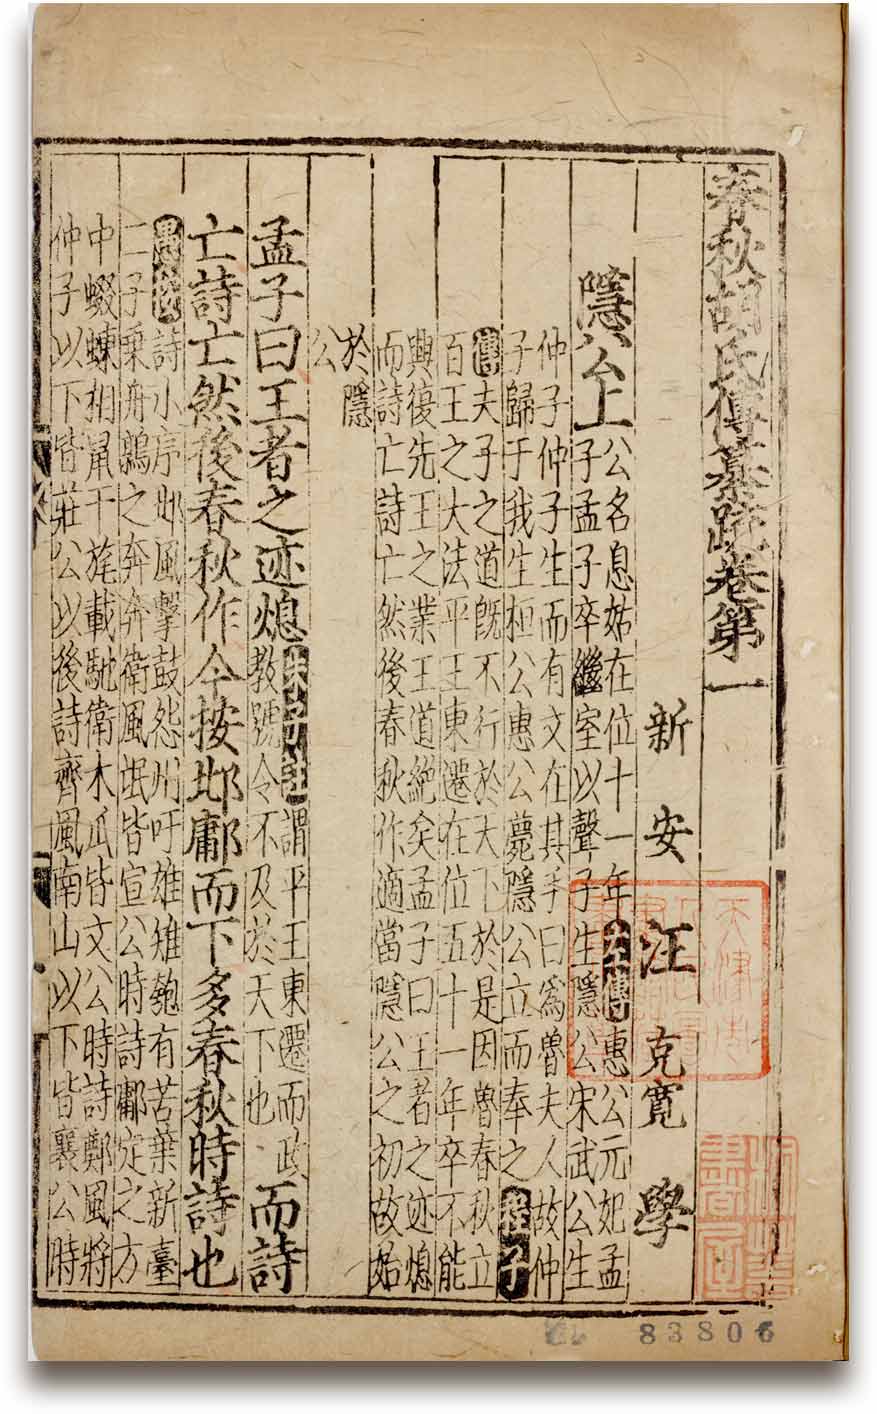 春秋胡氏傳纂疏卷第一
新安汪克寬學
隱公上
公名息姑在位十一年左傳惠公元妃孟
子孟子卒繼室以聲子生隱公宋武公生
仲子仲子生而有文在其手曰爲魯夫人故仲
子歸于我生桓公惠公薨隱公立而奉之程子
傳夫子之道旣不行於天下於是因魯春秋立
百王之大法平王東遷在位五十一年卒不能
興復先王之業王道絶矣孟子曰王者之迹熄
而詩亡詩亡然後春秋作適當隱公之初故始
於隱
公
孟子曰王者之迹熄
朱子註謂平王東遷而政
教號令不及於天下也
而詩
亡詩亡然後春秋作今按邶鄘而下多春秋時詩也
愚按詩小序邶風擊鼓怨州吁雄雉匏有苦葉新臺
二子乘舟鶉之奔奔衛風氓皆宣公時詩鄘定之方
中蝃蝀相鼠干旄載馳衛木瓜皆文公時詩鄭風將
仲子以下皆莊公以後詩齊風南山以下皆襄公時
83806